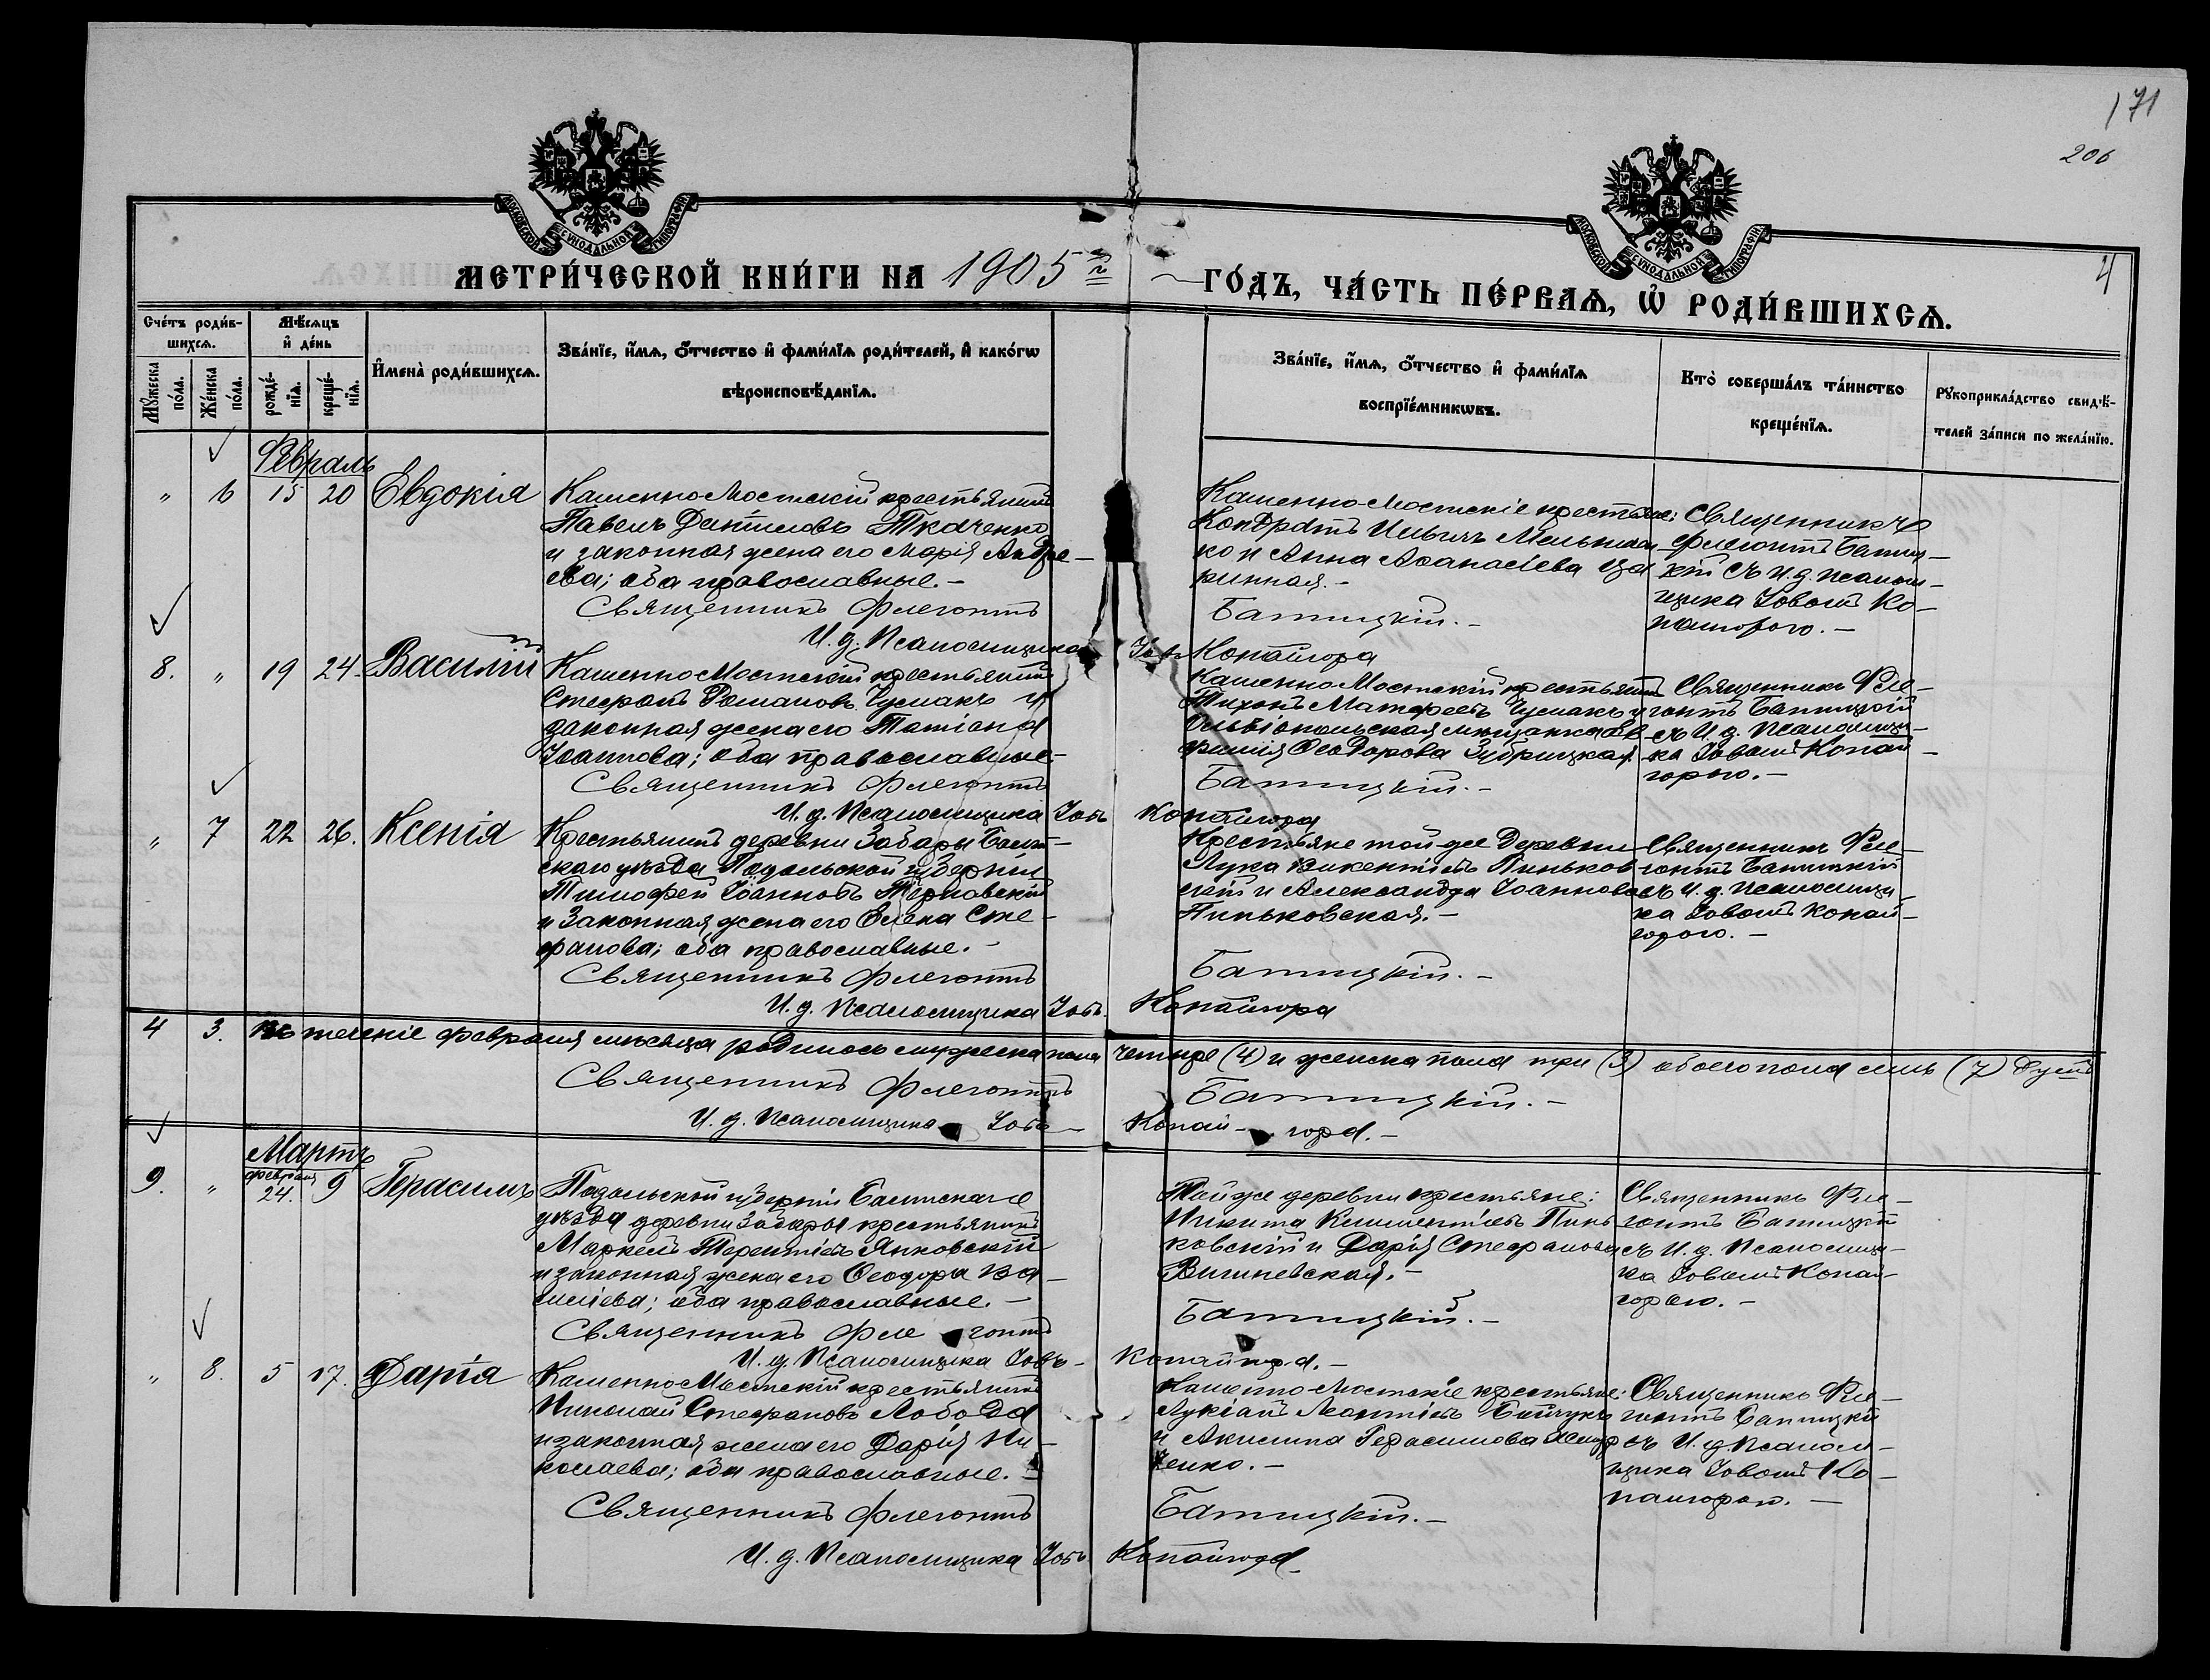 171
206
4
МОСКОВСКОЙ СѴНОДАЛЬНОЙ ТИПОГРАФІИ
МОСКОВСКОЙ СѴНОДАЛЬНОЙ ТИПОГРАФІИ
МЕТРИ́ЧЕСКОЙ КНИ́ГИ НА 1905 г ГО́ДЪ, ЧА́СТЬ ПЕ́РВАѦ, Ѡ҆ РОДИ́ВШИХСѦ.
Сче́тъ роди́в-
шихсѧ.
Мꙋ́жеска по́ла.
Же́нска по́ла.
Мѣ́сѧцъ
и҆ де́нь
рожде́-
нїѧ.
креще́-
нїѧ.
И҆мена̀ роди́вшихсѧ.
Зва́нїе, и҆́мѧ, ѻ҆́тчество и҆ фами́лїѧ роди́телей, и҆ како́гѡ
вѣроисповѣ́данїѧ.
Зва́нїе, и҆́мѧ, ѻ҆́тчество и҆ фами́лїѧ
воспрїе́мникѡвъ.
Кто̀ соверша́лъ та́инство
креще́нїѧ.
Рꙋкоприкла́дство свидѣ́-
телей за́писи по жела́нїю.
Февраль
" 6 15 20 Евдокія
Каменно-Мостскій крестьянинъ
Павелъ Даниловъ Ткаченко
и законная жена его Марія Андре-
ева; оба православные. -
Священникъ Флегонтъ Батицкій. -
И. д. Псаломщика Іовъ Копайгора
Каменно-Мостскіе крестьяне:
Кондратъ Ильичъ Мельничен-
ко и Анна Аѳанасіева
Священникъ
Флегонтъ Батиц-
кій съ И. д. псалом-
щика Іовомъ Ко-
пайгорою. -
8. " 19 24. Василій
Каменно-Мостскій крестьянинъ
Стефанъ Романовъ Чумакъ и
законная жена его Татіана
Іоаннова; оба православные. -
Священникъ Флегонтъ Батицкій. -
И. д. Псаломщика Іовъ Копайгора
Каменно-Мостскій крестьянинъ
Тихонъ Матфеевъ Чумакъ и
Ольвіопольская мѣщанка
Ѳеодорова Зубрицкая.
Священникъ Фле-
гонтъ Батицкій
съ И. д. Псаломщи-
ка Іовомъ Копай-
горою. -
" 7 22 26. Ксенія
Крестьянинъ деревни Забары Балт-
скаго уѣзда Подольской губерніи
Тимофей Іоанновъ Терновскій
и законная жена его Елена Сте-
фанова; оба православные. -
Священникъ Флегонтъ Батицкій. -
И. д. Псаломщика Іовъ Копайгора
Крестьяне той-же деревни
Лука Викентіевъ Пиньков-
скій и Александра Іоаннова
Пиньковская. -
Священникъ Фле-
гонтъ Батицкій
съ И. д. Псаломщи-
ка Іовомъ Копай-
горою. -
4 3. Въ теченіе февраля мѣсяца родилось мужеска пола четыре (4) и женска пола три (3) обоего пола семь (7) душъ
Священникъ Флегонтъ Батицкій. -
И. д. Псаломщика Іовъ - Копай-гора. -
Мартъ
9. " февраля 24. 9 Герасимъ
Подольской губерніи Балтскаго
уѣзда деревни Забары крестьянинъ
Маркелъ Терентіевъ Янковскій
и законная жена его Ѳеодора Ва-
силіева; оба православные. -
Священникъ Флегонтъ Батицкій. -
И. д. Псаломщика Іовъ - Копайгора. -
Той же деревни крестьяне:
Никита Климентіевъ Пинь-
ковскій и Дарія Стефанова
Вишневская. -
Священникъ Фле-
гонтъ Батицкій
съ И. д. Псаломщи-
ка Іовомъ Копай-
горою. -
" 8. 5 17. Дарія
Каменно-Мостскій крестьянинъ
Николай Стефановъ Лобода
и законная жена его Дарія Ни-
колаева; оба православные. -
Священникъ Флегонтъ Батицкій. -
И. д. Псаломщика Іовъ Копайгора.
Каменно-Мостскіе крестьяне:
Лукіанъ Леонтіевъ
и Акилина Герасимова
ченко. -
Священникъ Фле-
гонтъ Батицкій
съ И. д. Псалом-
щика Іовомъ Ко-
пайгорою. -